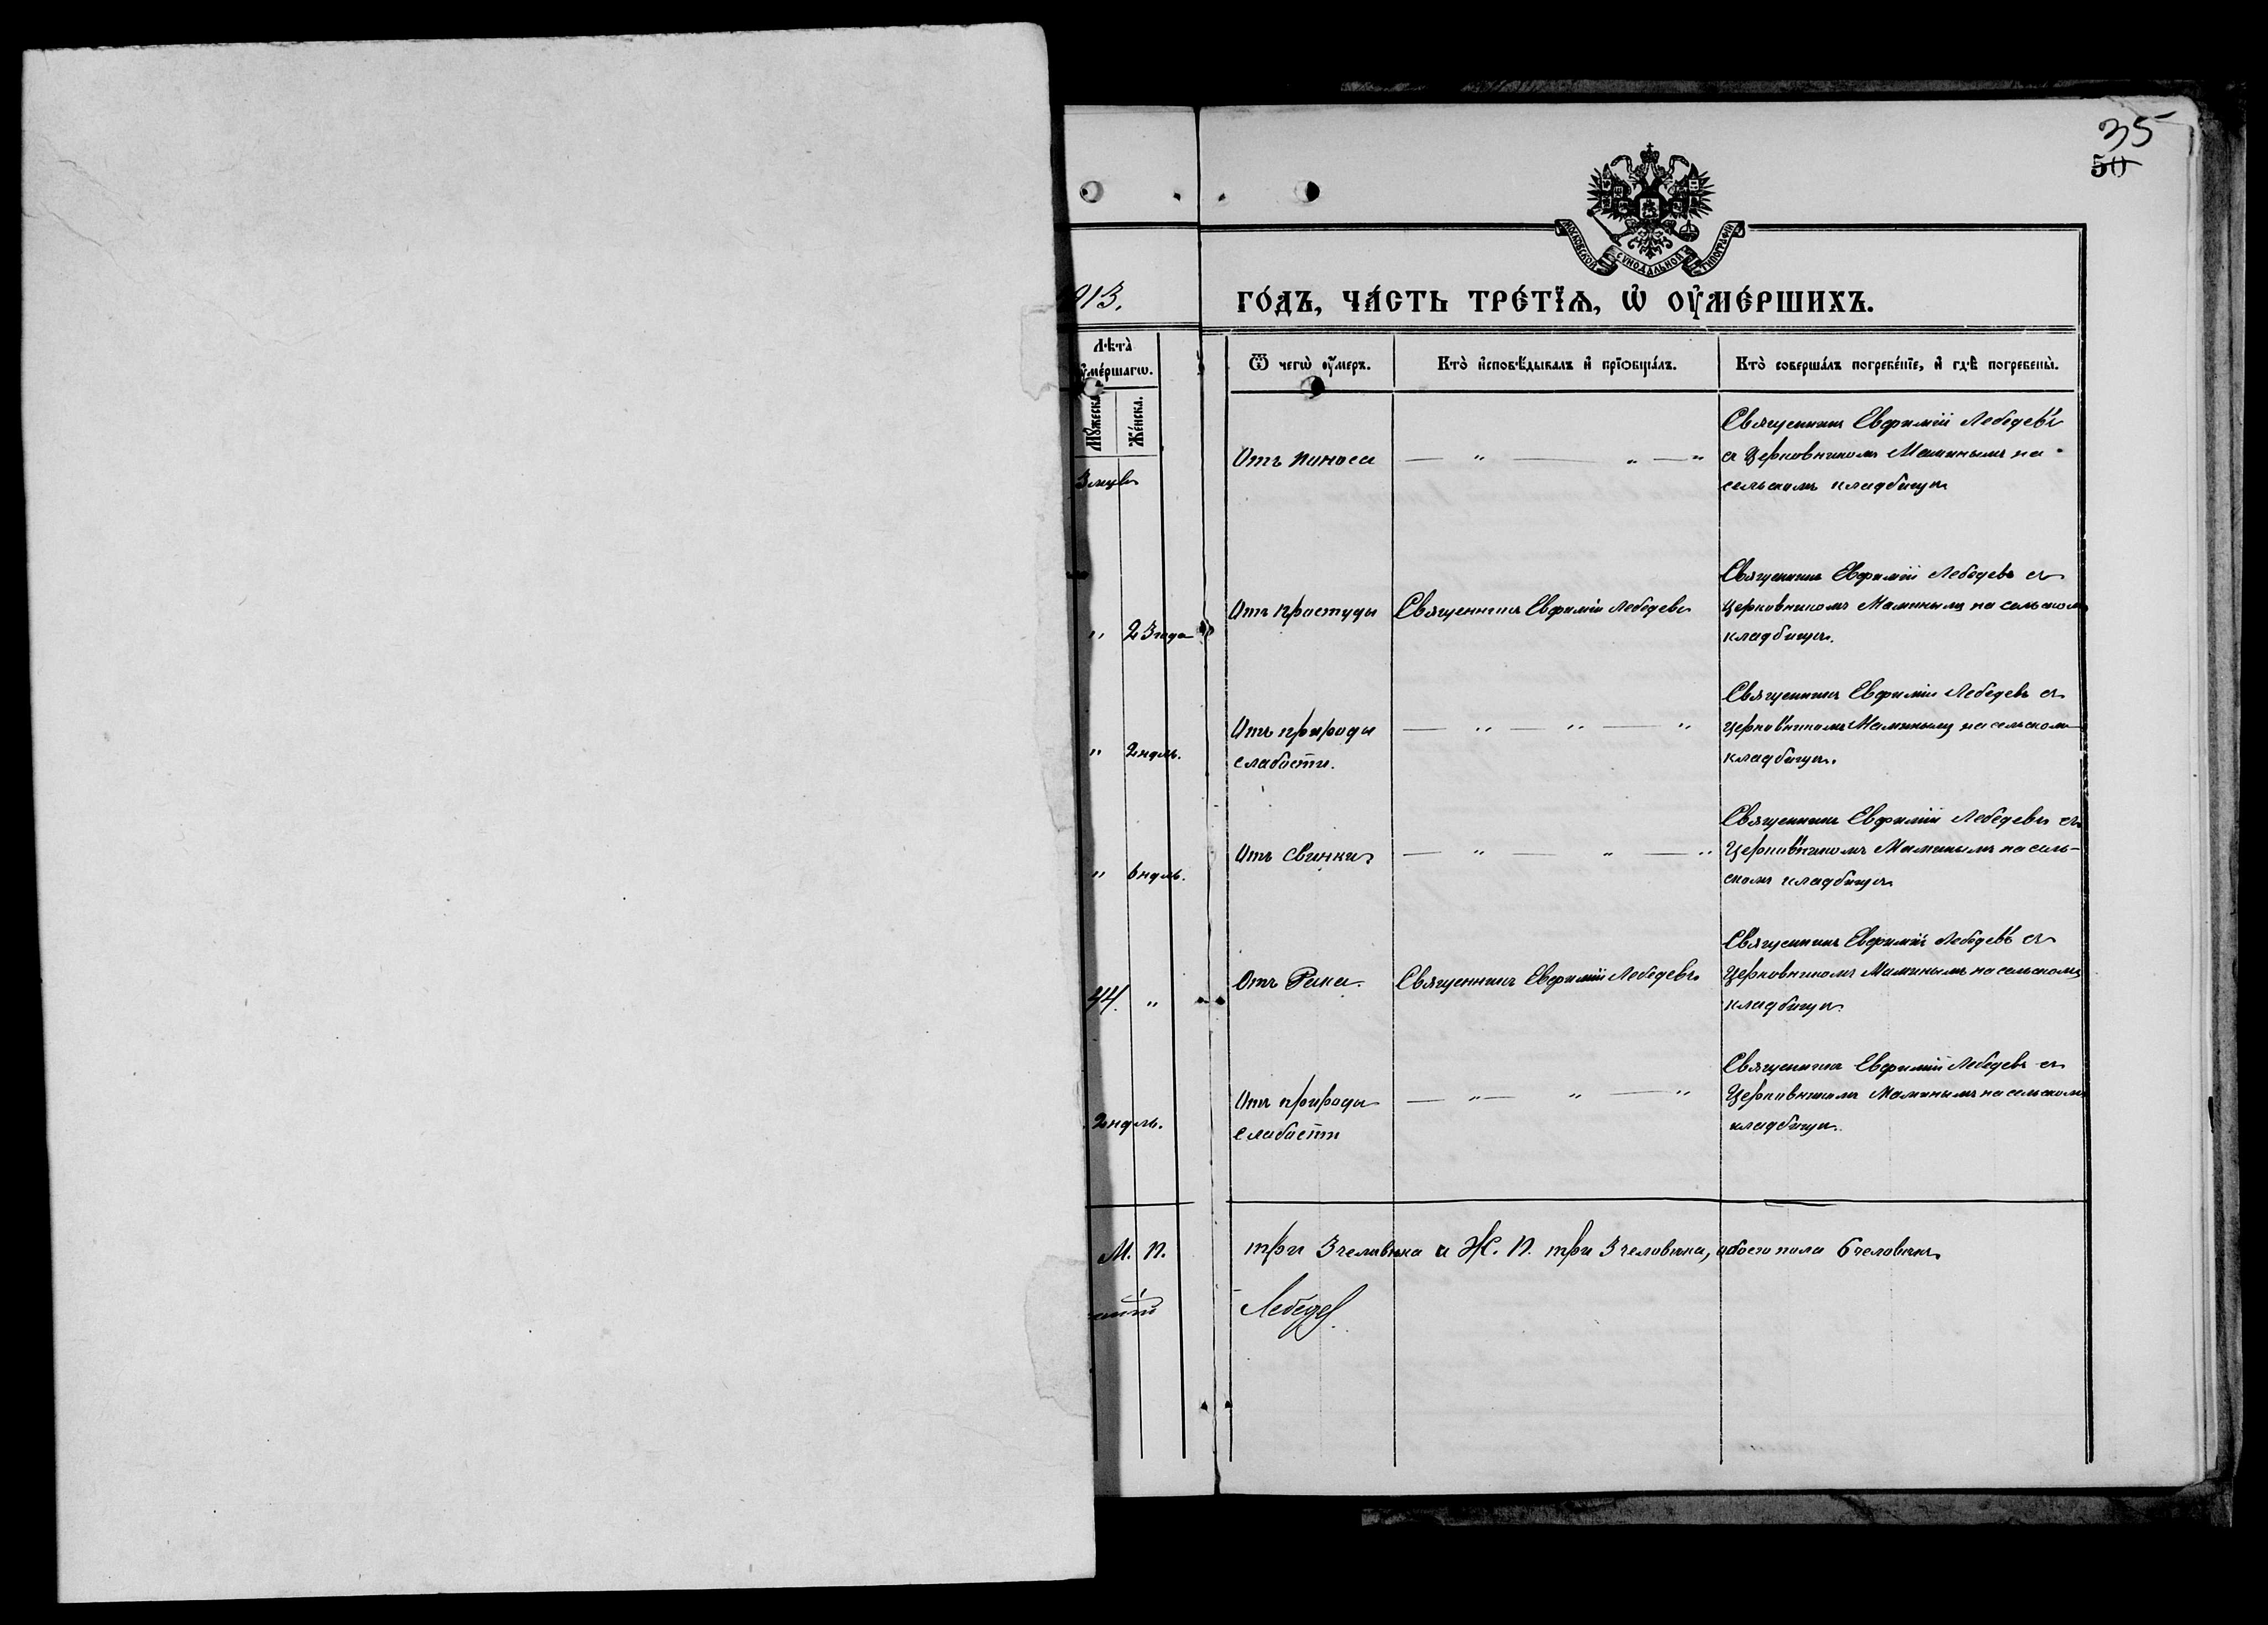 35
50
МОСКОВСКОЙ СѴНОДАЛЬНОЙ ТИПОГРАФІИ
913.
ГО́ДЪ, ЧА́СТЬ ТРЕ́ТЇѦ, Ѡ҆ ОУ҆МЕ́РШИХЪ.
Лѣта̀ ᲂу҆ме́ршагѡ.
Мꙋ́жеска.
Же́нска.
Ѿ чегѡ̀ ᲂу҆́меръ.
Кто̀ и҆сповѣ́дывалъ и҆ прїѡбща́лъ.
Кто̀ соверша́лъ погребе́нїе, и҆ гдѣ̀ погребены̀.
3 мцв
Отъ поноса
— " — " — "
Священникъ Евфимій Лебедевъ
съ Церковникомъ Маминымъ на
сельскомъ кладбищѣ
" 23 года
Отъ простуды
Священникъ Евфимій Лебедевъ
Священникъ Евфимій Лебедевъ съ
Церковникомъ Маминымъ на сельскомъ
кладбищѣ.
" 2 ндль.
Отъ природы
слабости.
— " — " — "
Священникъ Евфимій Лебедевъ съ
Церковникомъ Маминымъ на сельскомъ
кладбищѣ.
" 6 ндль.
Отъ свинки
— " — " — "
Священникъ Евфимій Лебедевъ съ
Церковникомъ Маминымъ на сель-
скомъ кладбищѣ
44. "
Отъ Рака.
Священникъ Евфимій Лебедевъ
Священникъ Евфимій Лебедевъ съ
Церковникомъ Маминымъ на сельскомъ
кладбищѣ
2 ндль.
Отъ природы
слабости
— " — " — "
Священникъ Евфимій Лебедевъ съ
Церковникомъ Маминымъ на сельскомъ
кладбищѣ.
М. П. три 3 человѣка и Ж. П. три 3 человѣка, обоего пола 6 человѣкъ
Лебедев